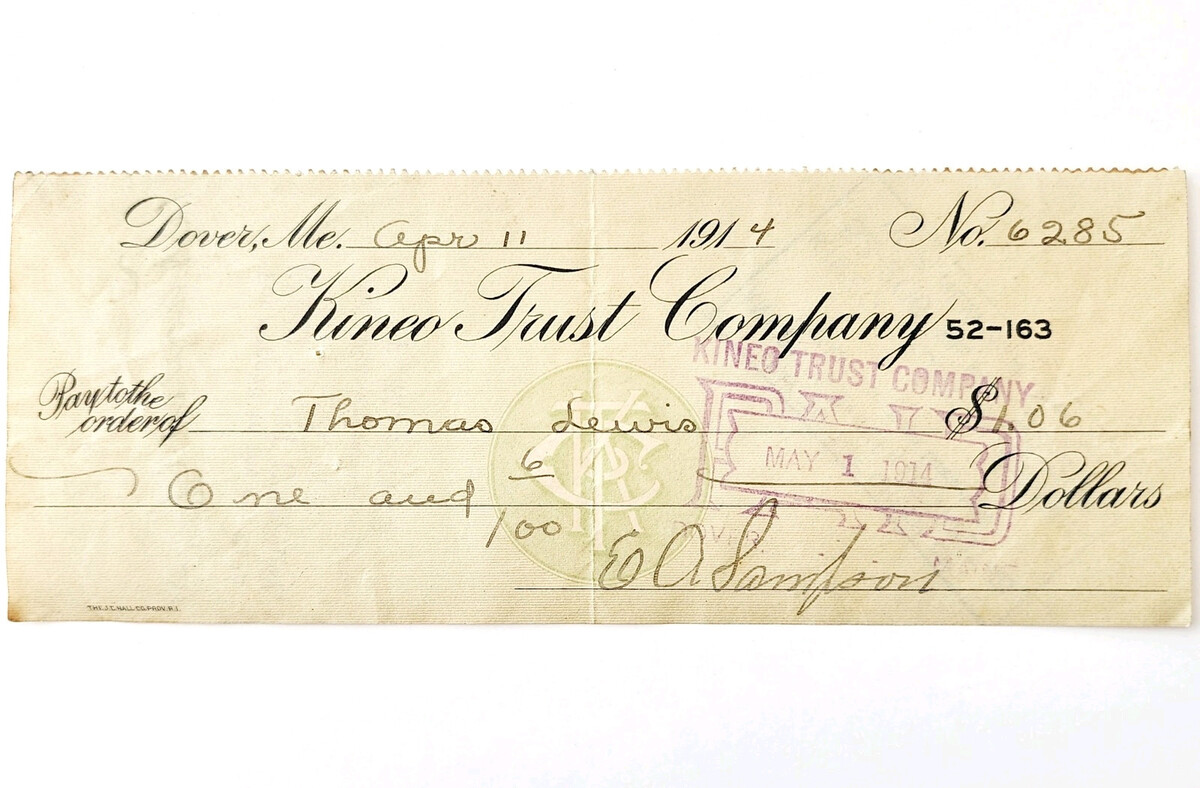 Dover, Me. Apr 11 1914 No. 6285
Kineo Trust Company 52-163
KINEO TRUST COMPANY
Pay to the order of Thomas Lewis $1.06
PAID
MAY 1 1914
One and 6/100 Dollars
E A Sampson
THE J.C. HALL CO. PROV. R.I.